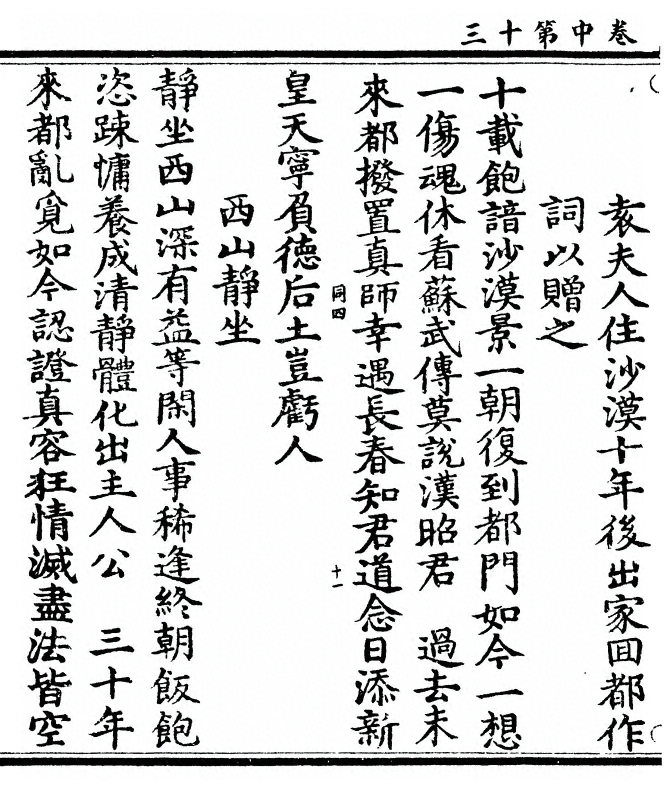 卷中第十三
袁夫人住沙漠十年後出家囬都作
詞以贈之
十載飽諳沙漠景一朝復到都門如今一想
一傷魂休看蘇武傳莫説漢昭君　過去未
來都撥置真師幸遇長春知君道念日添新
同四
十一
皇天寧負德后土豈虧人
西山靜坐
靜坐西山深有益等閑人事稀逢終朝飯飽
恣踈慵養成清靜體化出主人公　三十年
來都亂覓如今認證真容狂情滅盡法皆空